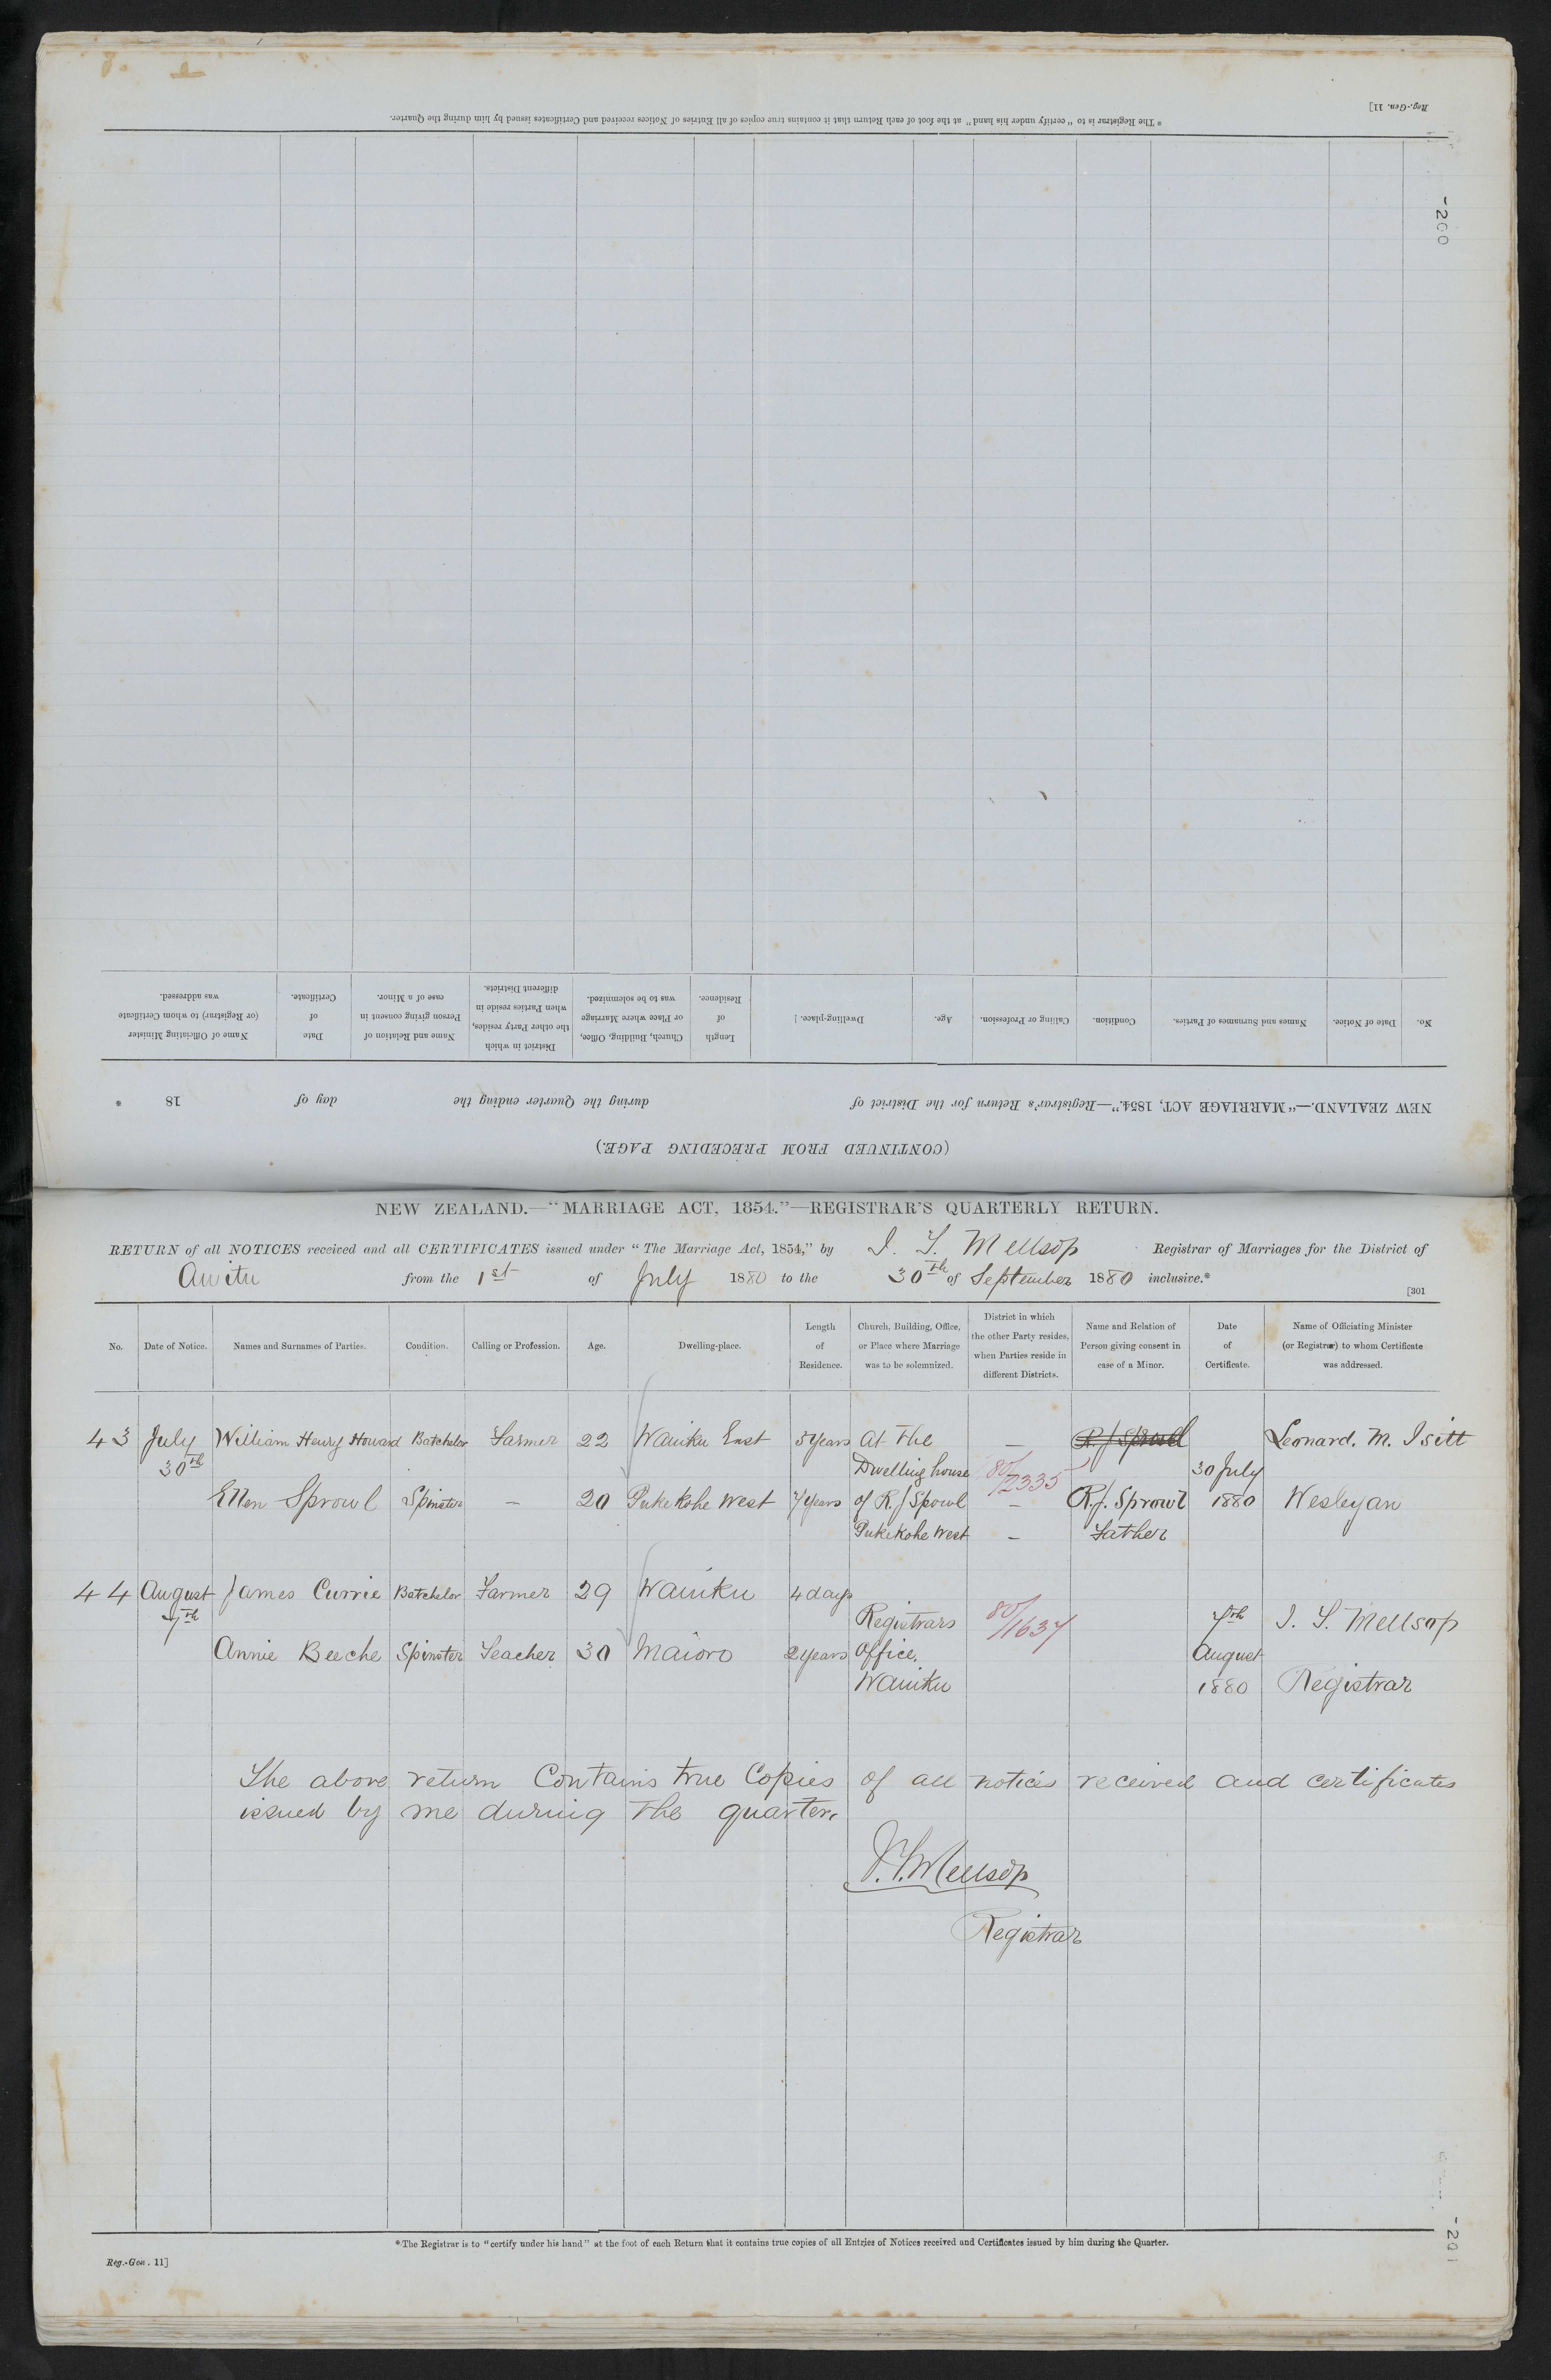 Reg.-Gen. 11]
* The Registrar is to "certify under his hand" at the foot of each Return that it contains true copies of all Entries of Notices received and Certificates issued by him during the Quarter.
-200
No. Date of Notice. Names and Surnames of Parties. Condition. Calling or Profession. Age. Dwelling-place. Length of Residence. Church, Building, Office, or Place where Marriage was to be solemnized. District in which the other Party resides, when Parties reside in different Districts. Name and Relation of Person giving consent in case of a Minor. Date of Certificate. Name of Officiating Minister (or Registrar) to whom Certificate was addressed.
NEW ZEALAND.—"MARRIAGE ACT, 1854."—Registrar's Return for the District of during the Quarter ending the day of 18 *
(CONTINUED FROM PRECEDING PAGE.)
NEW ZEALAND.—"MARRIAGE ACT, 1854."—REGISTRAR'S QUARTERLY RETURN.
RETURN of all NOTICES received and all CERTIFICATES issued under "The Marriage Act, 1854," by J. T. Mellsop Registrar of Marriages for the District of
Awitu from the 1st of July 1880 to the 30th of September 1880 inclusive.*
[301
No. Date of Notice. Names and Surnames of Parties. Condition. Calling or Profession. Age. Dwelling-place. Length of Residence. Church, Building, Office, or Place where Marriage was to be solemnized. District in which the other Party resides, when Parties reside in different Districts. Name and Relation of Person giving consent in case of a Minor. Date of Certificate. Name of Officiating Minister (or Registrar) to whom Certificate was addressed.
43 July William Henry Howard Batchelor Farmer 22 Waiuku East 5 years At the — R. J Sprowl Leonard. M. Isitt
30th Dwelling house 80/2335 30 July
Ellen Sprowl Spinster — 20 Pukekohe West 7 years of R. J Sprowl — R. J. Sprowl 1880 Wesleyan
Pukekohe West — Father
44 August James Currie Batchelor Farmer 29 Waiuku 4 days
7th Registrars 80/1637 7th J. T. Mellsop
Annie Beeche Spinster Teacher 30 Maioro 2 years Office. August
Waiuku 1880 Registrar
The above return Contains true Copies of all notices received and certificates
issued by me during the quarter.
J. T. Mellsop
Registrar
* The Registrar is to "certify under his hand" at the foot of each Return that it contains true copies of all Entries of Notices received and Certificates issued by him during the Quarter.
Reg.-Gen. 11]
-201